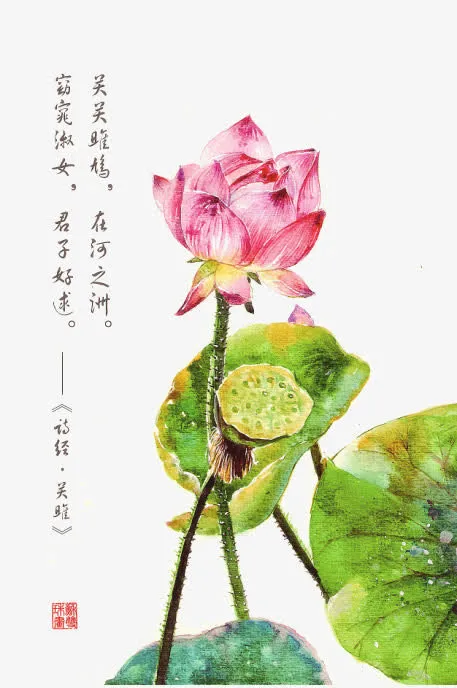 关关雎鸠，在河之洲。
窈窕淑女，君子好逑。——《诗经·关雎》